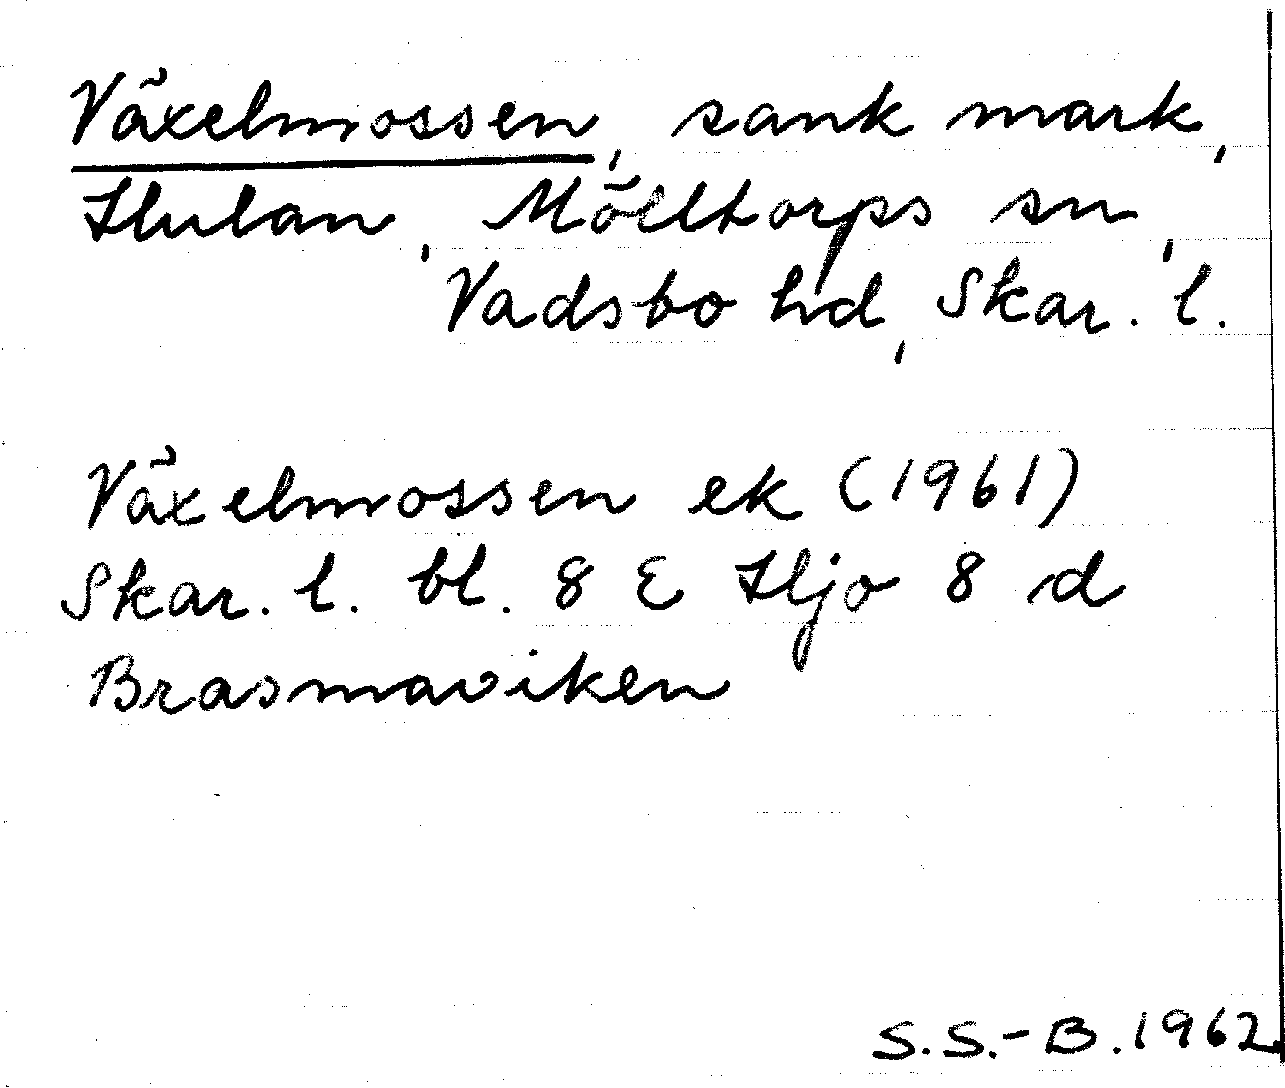 Växelmossen, sank mark,
Hulan, Mölltorps sn,
Vadsbo hd, Skar. l.
Växelmossen ek (1961)
Skar. l. bl. 8 E Hjo 8 d
Brasmaviken
S.S.-B. 1962